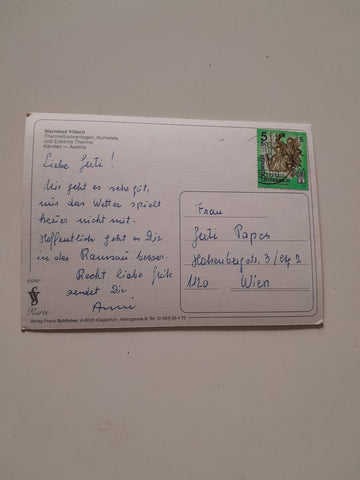 Warmbad Villach
Thermalbadeanlagen, Kurhotels
und Erlebnis Therme
Kärnten — Austria
Liebe Jerti!
Mir geht es sehr gut,
nur das Wetter spielt
heuer nicht mit.
Hoffentlich geht es Dir
in der Ramsau besser.
Recht liebe Grüße
sendet Dir
Anni
eine
Karte
Verlag Franz Schilcher, A-9020 Klagenfurt, Henzgasse 6, Tel. (0 463) 56 4 75
5 S
Frau
Jerti Papes
Hohenbergstr. 3/
1120 Wien